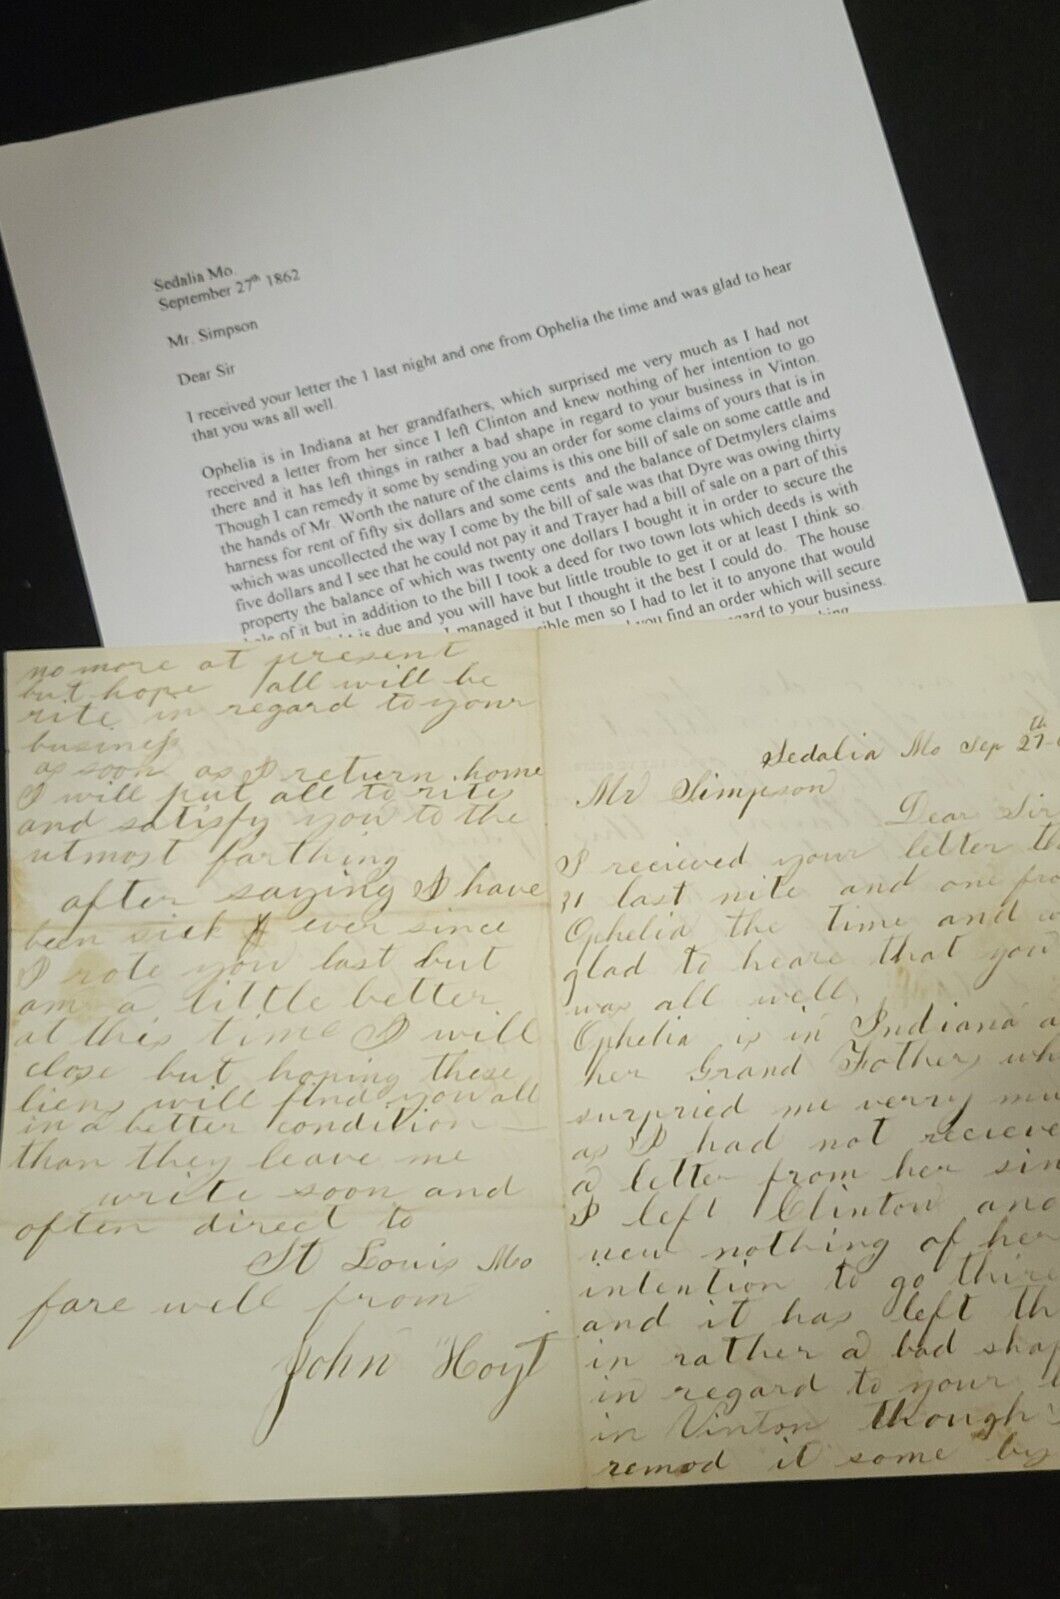 Sedalia Mo.
September 27th 1862
Mr. Simpson
Dear Sir
I received your letter the 1 last night and one from Ophelia the time and was glad to hear
that you was all well.
Ophelia is in Indiana at her grandfathers, which surprised me very much as I had not
received a letter from her since I left Clinton and knew nothing of her intention to go
there and it has left things in rather a bad shape in regard to your business in Vinton.
Though I can remedy it some by sending you an order for some claims of yours that is in
the hands of Mr. Worth the nature of the claims is this one bill of sale on some cattle and
harness for rent of fifty six dollars and some cents and the balance of Detmylers claims
which was uncollected the way I come by the bill of sale was that Dyre was owing thirty
five dollars and I see that he could not pay it and Trayer had a bill of sale on a part of this
property the balance of which was twenty one dollars I bought it in order to secure the
hole of it but in addition to the bill I took a deed for two town lots which deeds is with
is due and you will have but little trouble to get it or at least I think so.
I managed it but I thought it the best I could do. The house
men so I had to let it to anyone that would
you find an order which will secure
regard to your business.
no more at present
but hope all will be
rite in regard to your
business
as soon as I return home
I will put all to rites
and satisfy you to the
utmost farthing
after saying I have
been sick ever since
I rote you last but
am a little better
at this time I will
close but hoping these
liens will find you all
in a better condition
than they leave me
write soon and
often direct to
St Louis Mo
fare well from
John Hoyt
Sedalia Mo Sep 27th
Mr Simpson
Dear Sir
I recieved your letter
last nite and one
Ophelia the time and
glad to heare that you
was all well,
Ophelia is in Indiana
her Grand Fathers
surpried me verry
as I had not
a letter from her
I left Clinton and
new nothing of her
intention to go thire
and it has left
in rather a bad
in regard to your
in Vinton though
remod it some by